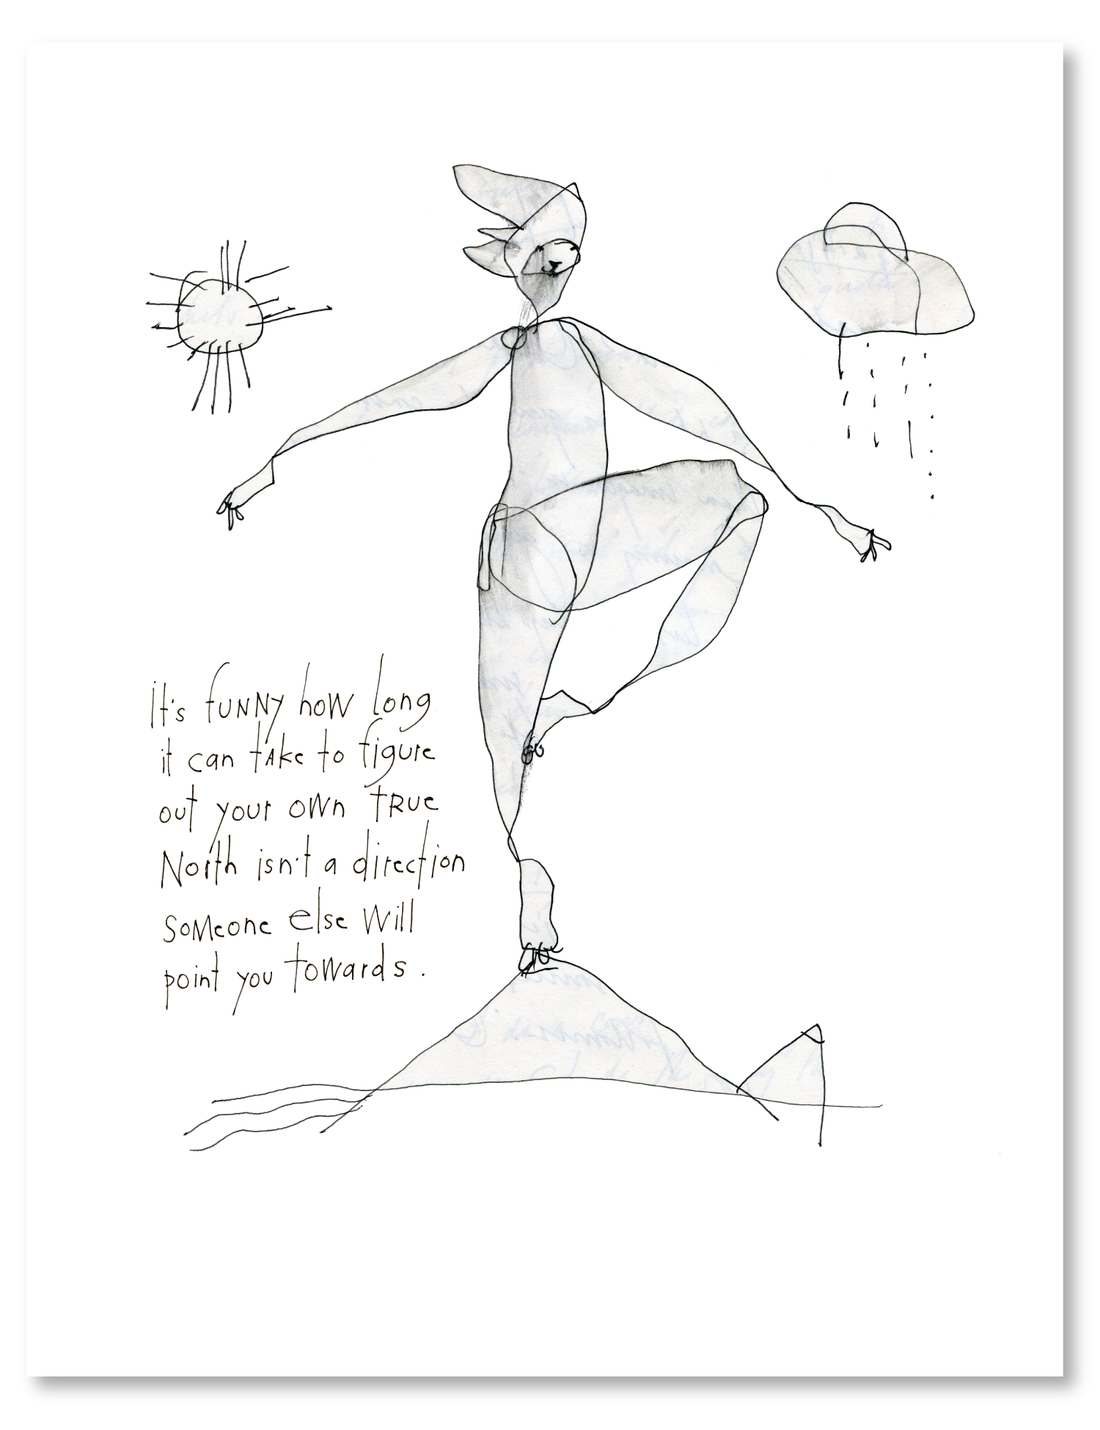 It's funny how long
it can take to figure
out your own true
North isn't a direction
someone else will
point you towards.